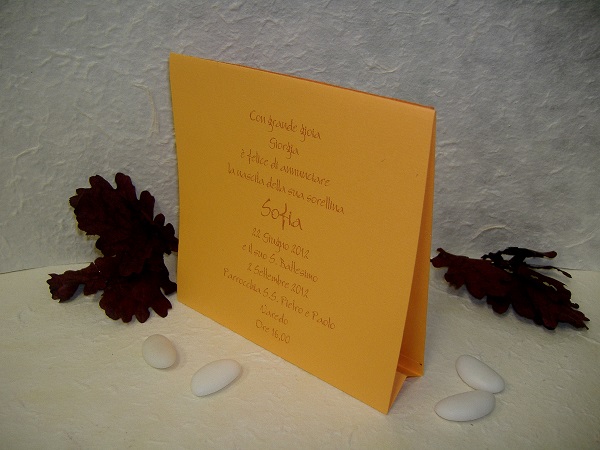 Con grande gioia
Giorgia
è felice di annunciare
la nascita della sua sorellina
Sofia
22 Giugno 2012
e il suo S. Battesimo
2 Settembre 2012
Parrocchia S.S. Pietro e Paolo
Varedo
Ore 16,00